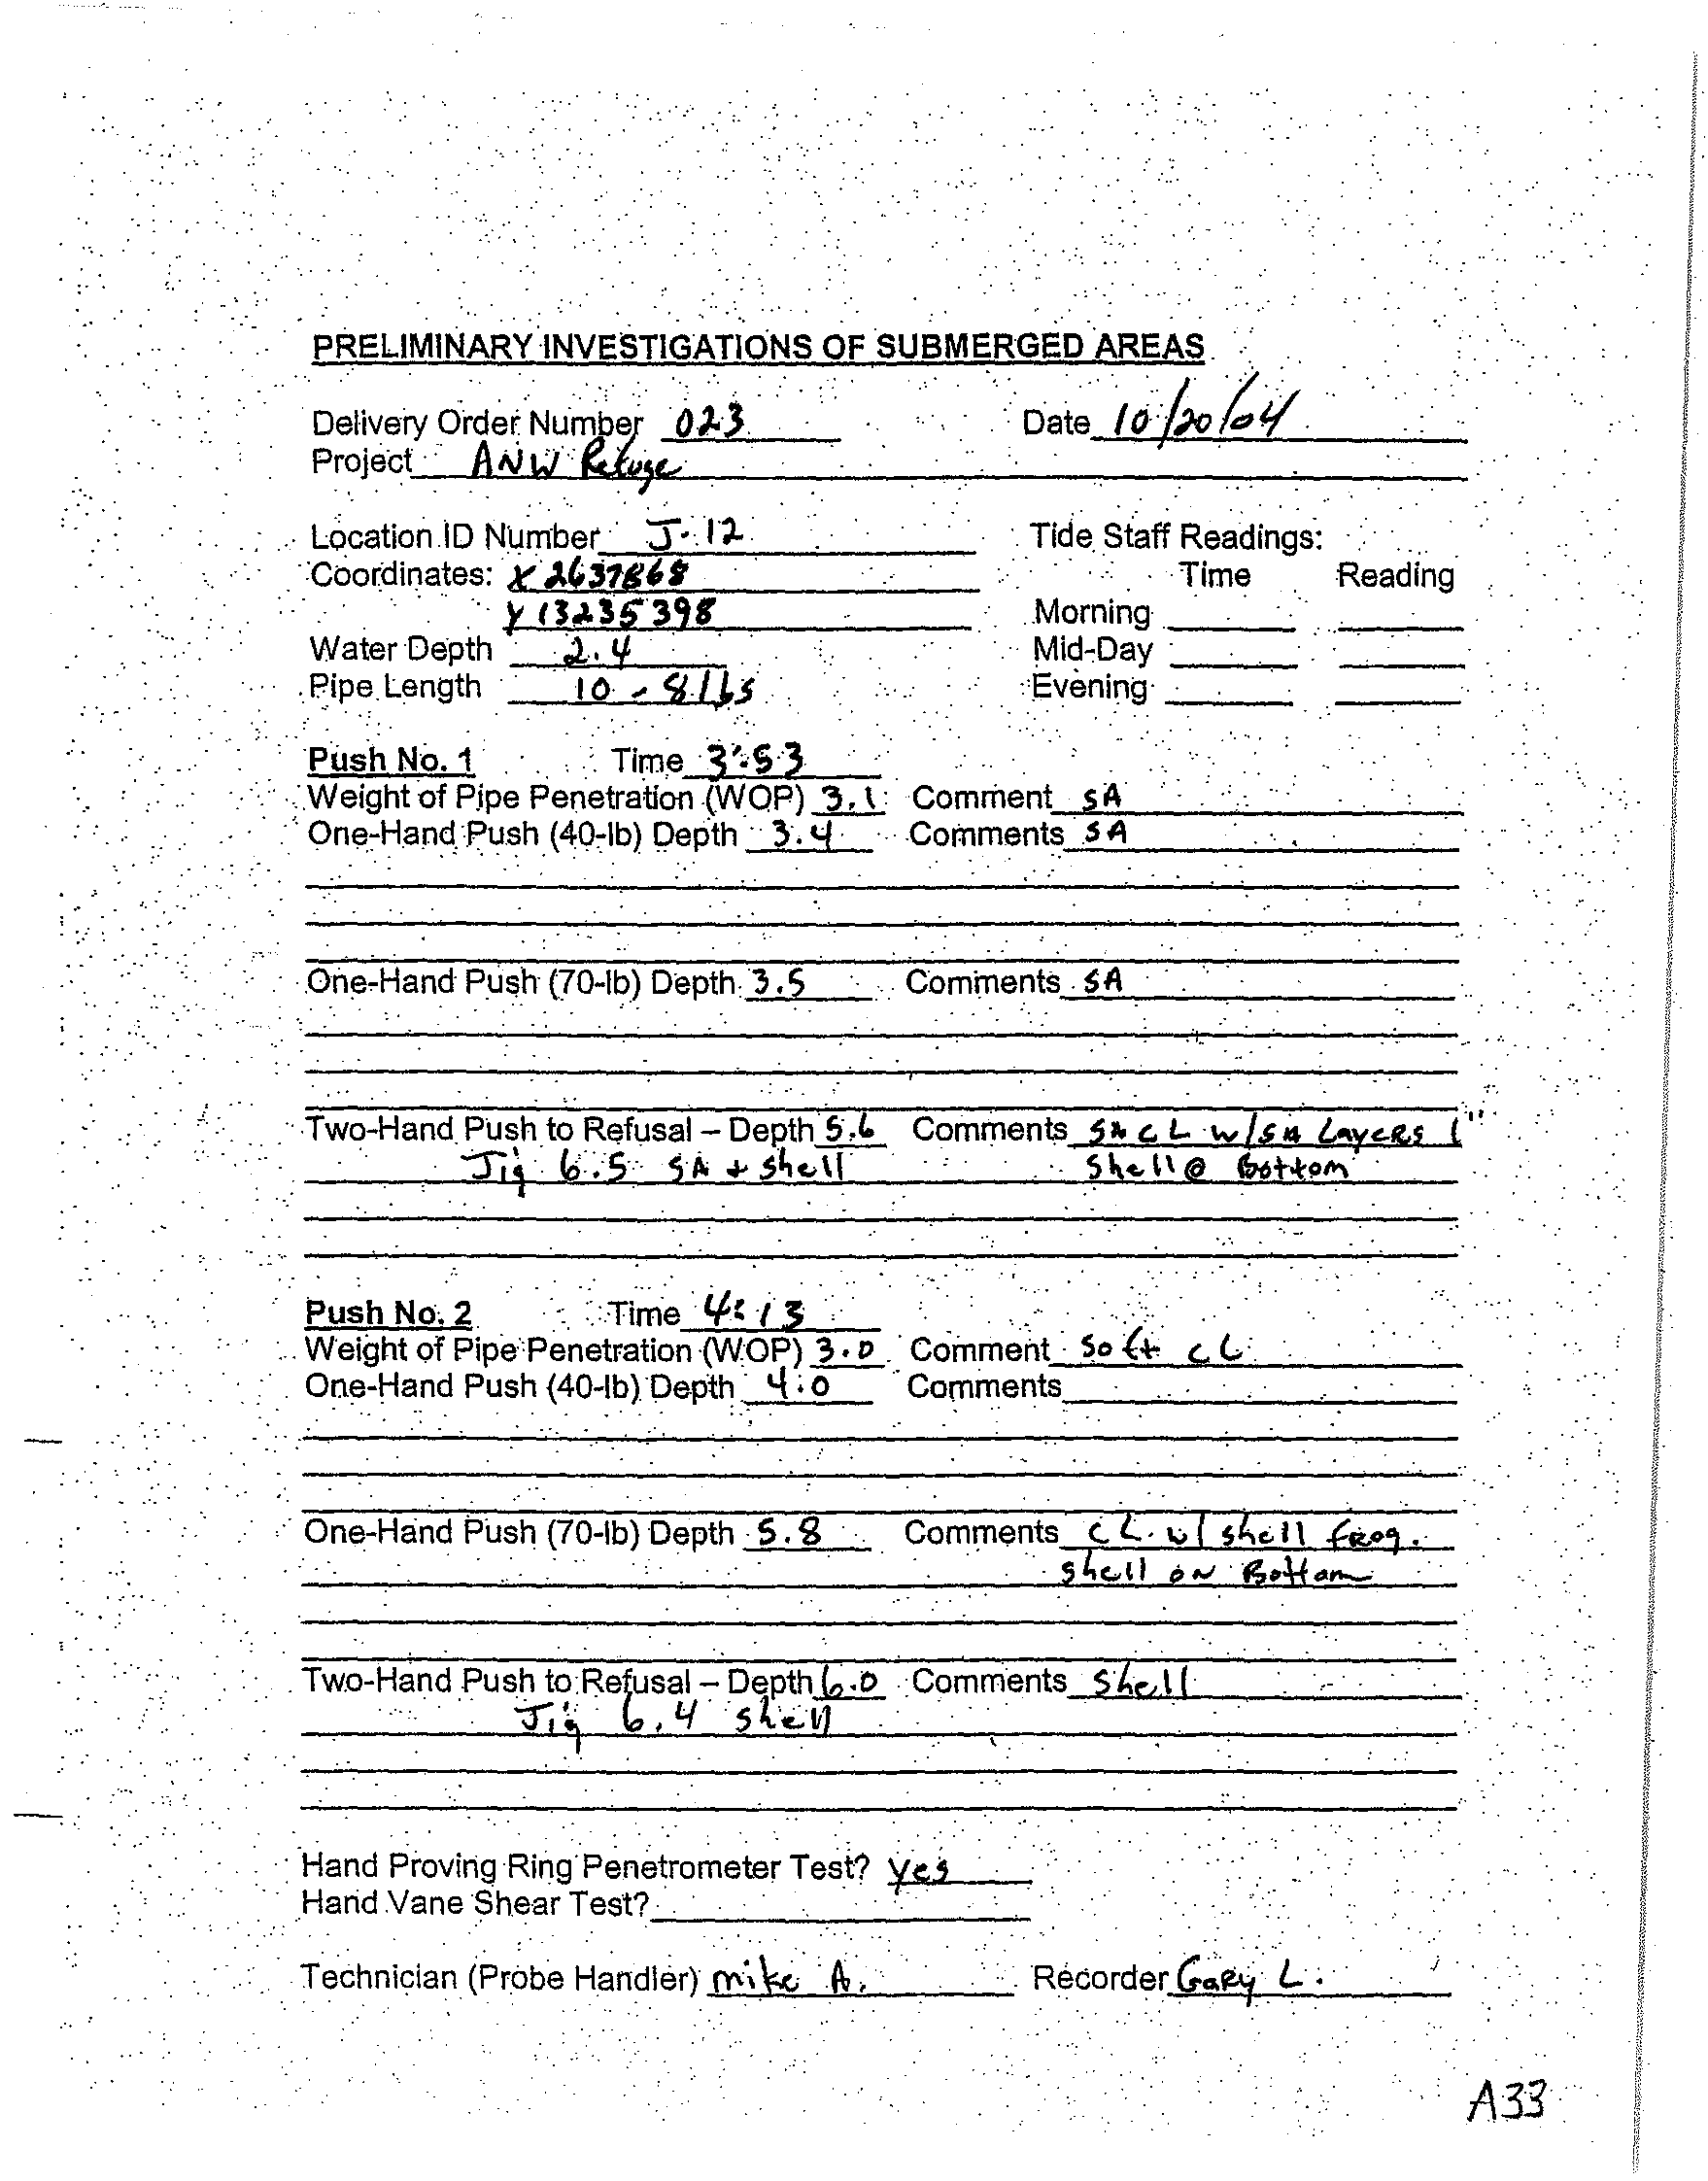 PRELIMINARY INVESTIGATIONS OF SUBMERGED AREAS
Delivery Order Number 023 Date 10/20/04
Project ANW Refuge
Location ID Number J-12 Tide Staff Readings:
Coordinates: X 2637868 Time Reading
Y 13235398 Morning
Water Depth 2.4 Mid-Day
Pipe Length 10 - 8 lbs Evening
Push No. 1 Time 3:53
Weight of Pipe Penetration (WOP) 3.1 Comment SA
One-Hand Push (40-lb) Depth 3.4 Comments SA
One-Hand Push (70-lb) Depth 3.5 Comments SA
Two-Hand Push to Refusal – Depth 5.6 Comments SA CL w/SA Layers 1"
Jig 6.5 SA + shell Shell @ Bottom
Push No. 2 Time 4:13
Weight of Pipe Penetration (WOP) 3.0 Comment Soft CL
One-Hand Push (40-lb) Depth 4.0 Comments
One-Hand Push (70-lb) Depth 5.8 Comments CL w/ shell frog.
shell on Bottom
Two-Hand Push to Refusal – Depth 6.0 Comments Shell
Jig 6.4 shell
Hand Proving Ring Penetrometer Test? yes
Hand Vane Shear Test?
Technician (Probe Handler) mike A. Recorder Gary L.
A33